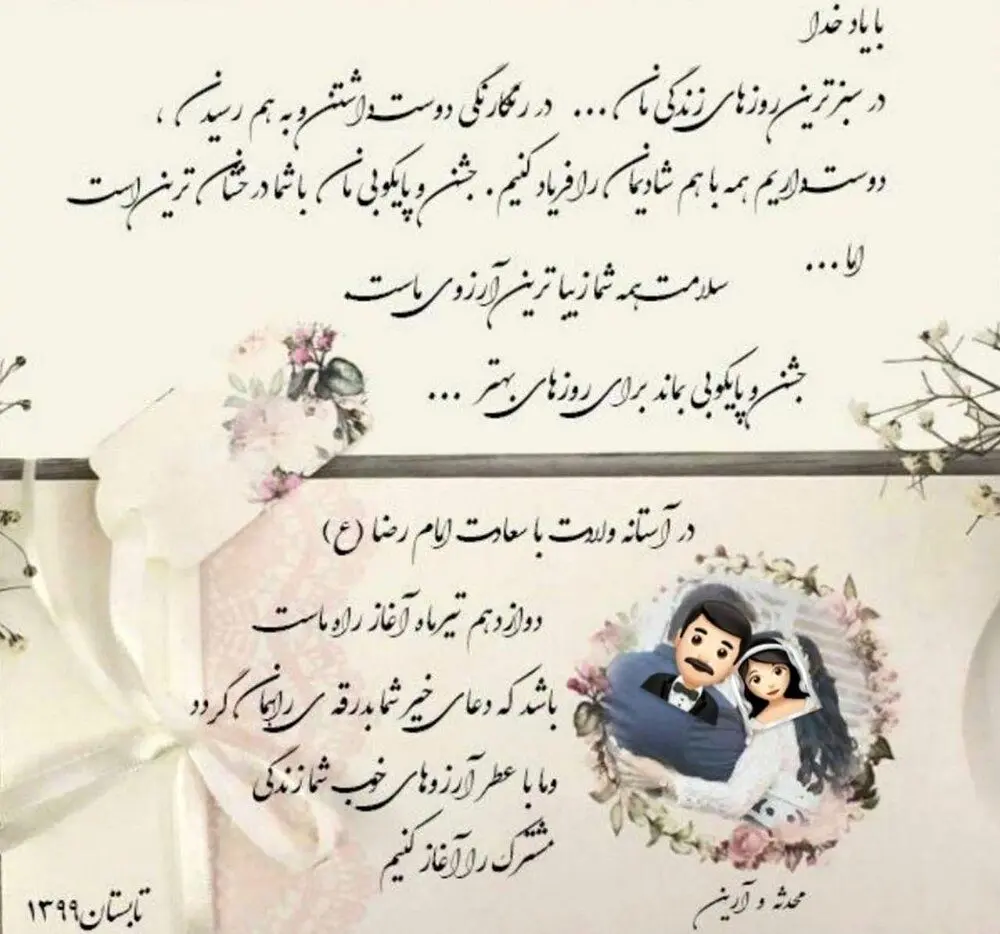 با یاد خدا
در سبزترین روزهای زندگی مان ... در رنگارنگی دوست داشتن و به هم رسیدن ،
دوست داریم همه با هم شادیمان را فریاد کنیم . جشن و پایکوبی مان با شما درخشان ترین است
اما ...
سلامت همه شما زیبا ترین آرزوی ماست.
جشن و پایکوبی بماند برای روزهای بهتر ...
در آستانه ولادت با سعادت امام رضا (ع)
دوازدهم تیرماه آغاز راه ماست
باشد که دعای خیر شما بدرقه ی راهمان گردد
وما با عطر آرزوهای خوب شما زندگی
مشترک را آغاز کنیم
محدثه و آرین
تابستان ۱۳۹۹